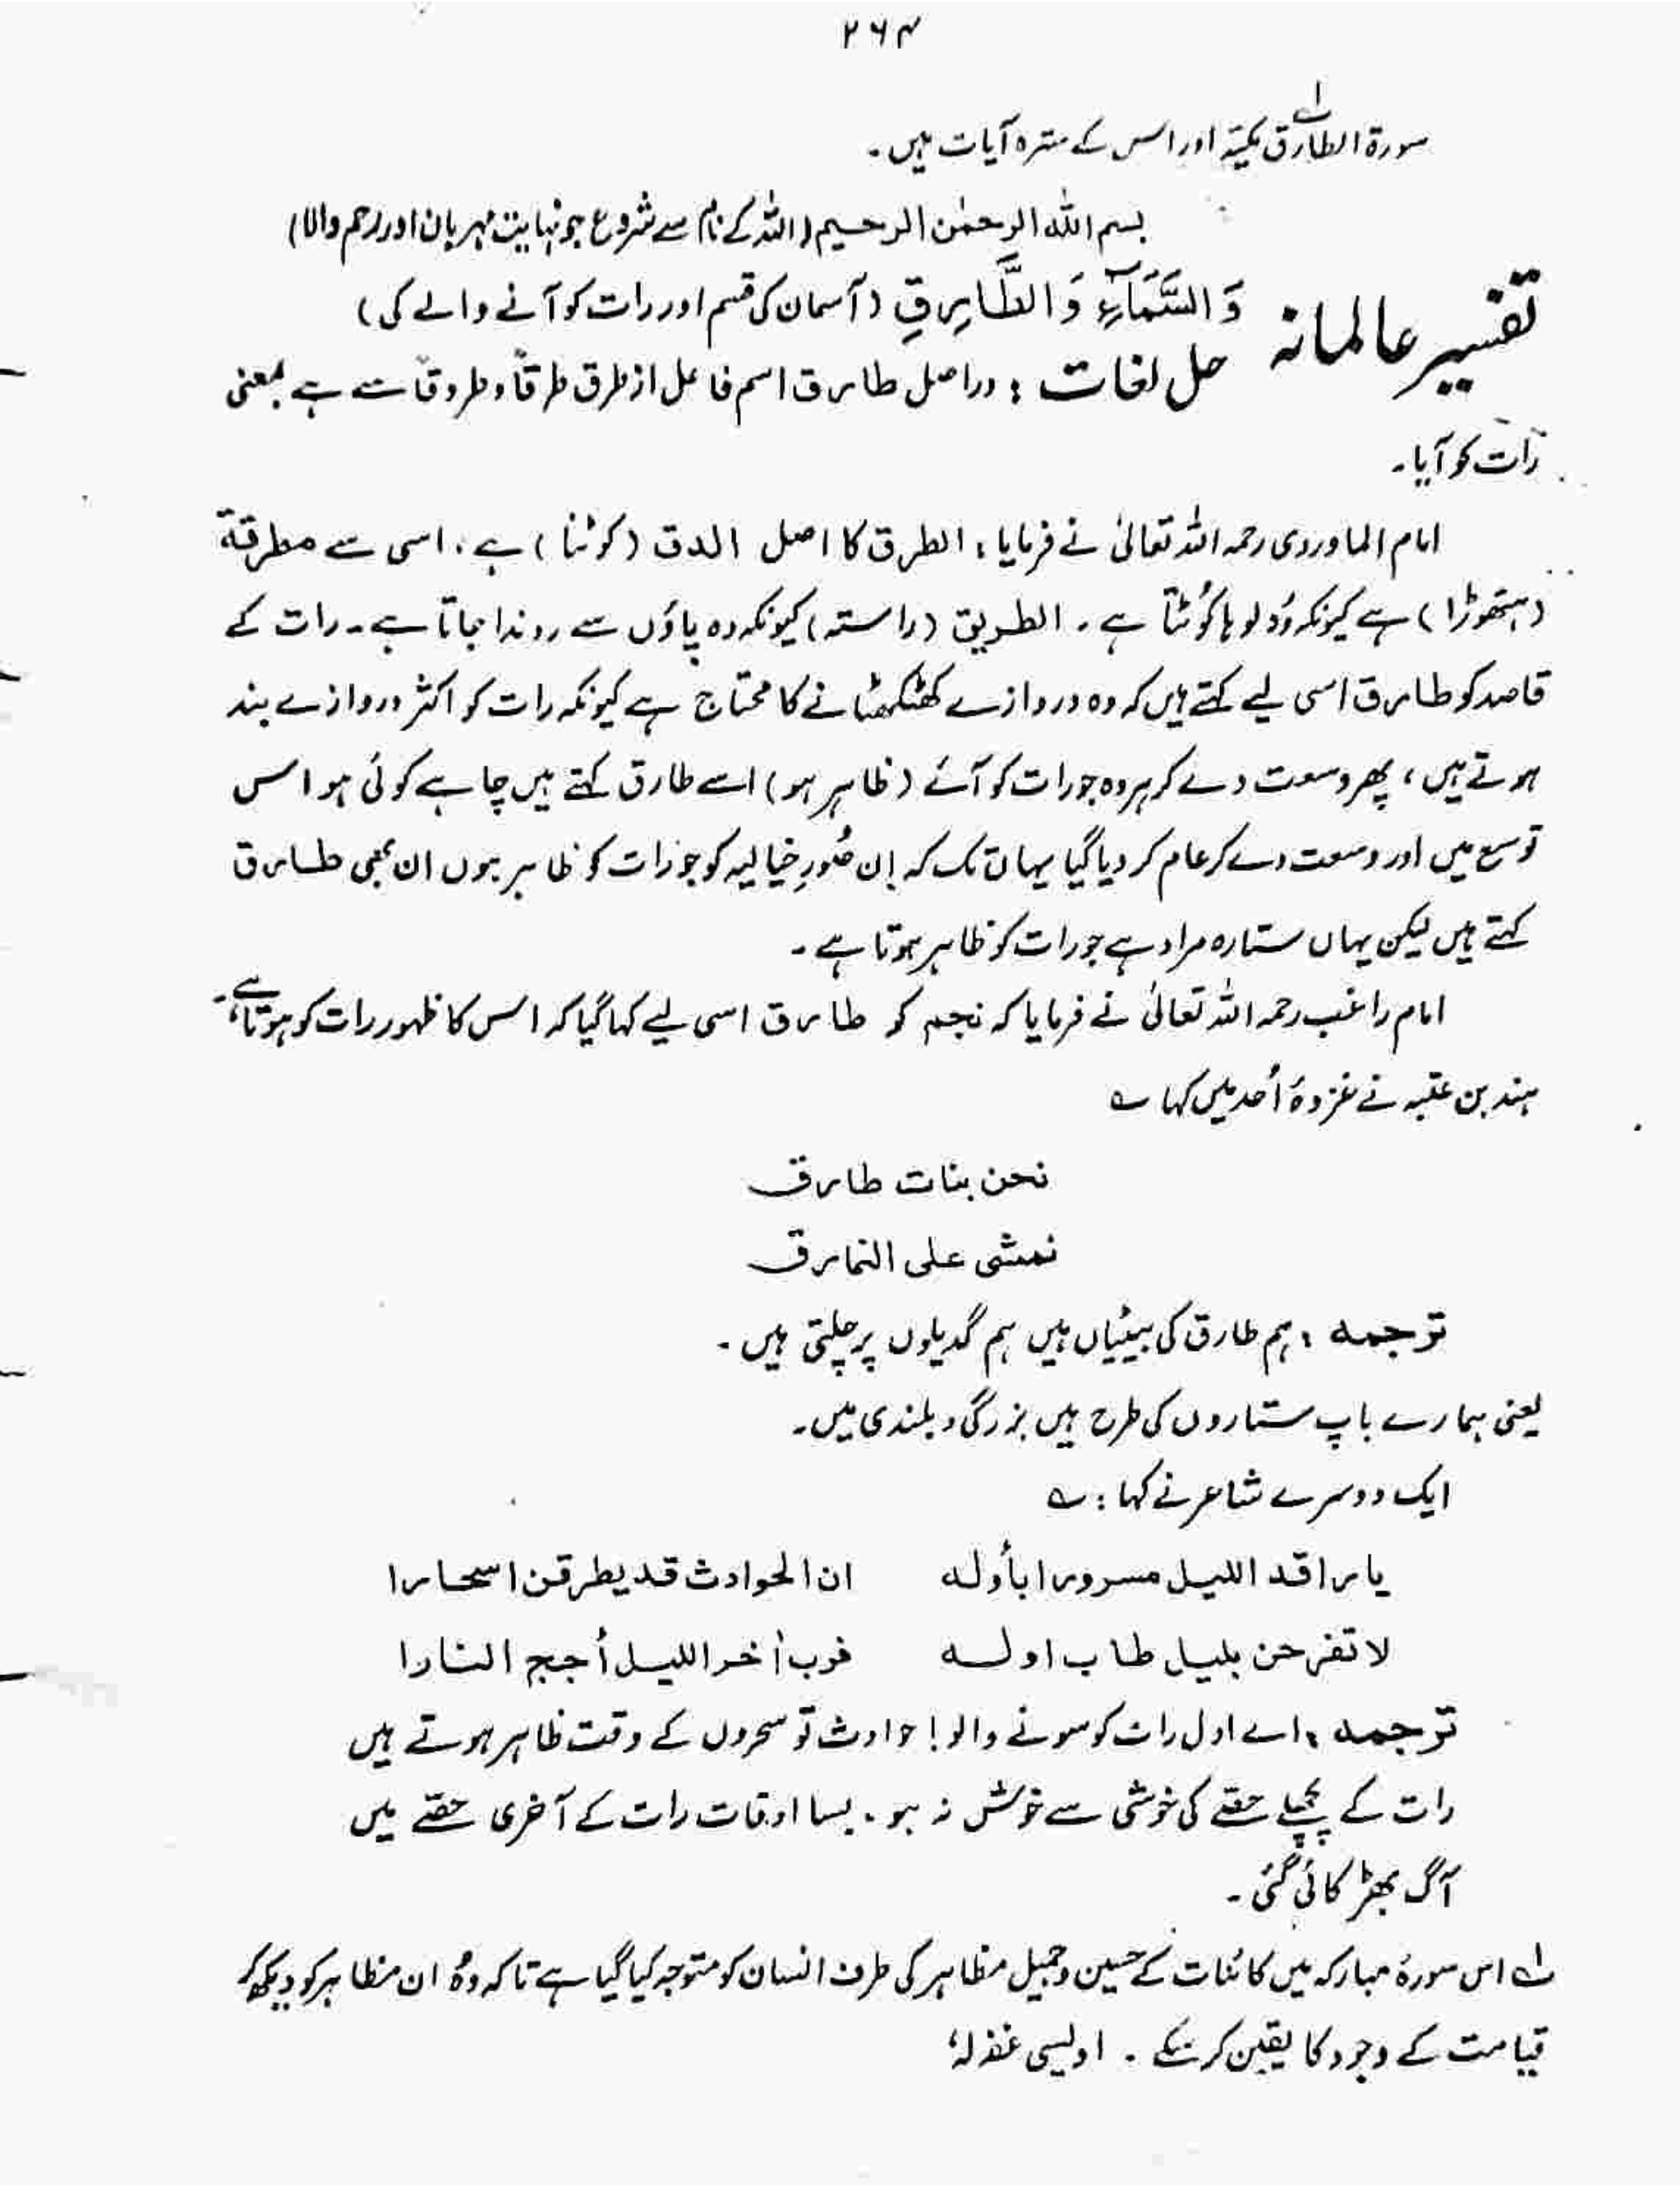 ۲۶۴
سورۃ الطارق مکیۃ اور اس کے سترہ آیات ہیں۔ ؎۱
بسم اللہ الرحمٰن الرحیم (اللہ کے نام سے شروع جو نہایت مہربان اور رحم والا)
وَالسَّمَآءِ وَالطَّارِقِ (آسمان کی قسم اور رات کو آنے والے کی)
تفسیر عالمانہ
حل لغات : دراصل طارق اسم فاعل از طرق طرقاً و طروقاً سے ہے بمعنی
رات کو آیا۔
امام الماوردی رحمہ اللہ تعالیٰ نے فرمایا : الطرق کا اصل الدق (کوٹنا) ہے، اسی سے مطرقۃ
(ہتھوڑا) ہے کیونکہ وُہ لوہا کُوٹتا ہے۔ الطریق (راستہ) کیونکہ وہ پاؤں سے روندا جاتا ہے۔ رات کے
قاصد کو طارق اسی لیے کہتے ہیں کہ وہ دروازے کھٹکھٹانے کا محتاج ہے کیونکہ رات کو اکثر دروازے بند
ہوتے ہیں، پھر وسعت دے کر ہر وہ جو رات کو آئے (ظاہر ہو) اسے طارق کہتے ہیں چاہے کوئی ہو اس
توسع میں اور وسعت دے کر عام کر دیا گیا یہاں تک کہ اِن صُورِ خیالیہ کو جو رات کو ظاہر ہوں ان بھی طارق
کہتے ہیں لیکن یہاں ستارہ مراد ہے جو رات کو ظاہر ہوتا ہے۔
امام راغب رحمہ اللہ تعالیٰ نے فرمایا کہ نجم کو طارق اسی لیے کہا گیا کہ اس کا ظہور رات کو ہوتا ہے۔
ہند بن عتبہ نے غزوۂ اُحد میں کہا ؎
نحن بنات طارق
نمشی علی النمارق
ترجمہ : ہم طارق کی بیٹیاں ہیں ہم گدیلوں پر چلتی ہیں۔
یعنی ہمارے باپ ستاروں کی طرح ہیں بزرگی و بلندی میں۔
ایک دوسرے شاعر نے کہا : ؎
یا راقد اللیل مسرورا بأولہ ان الحوادث قد یطرقن اسحارا
لا تفرحن بلیل طاب اولہ فرب أخر اللیل أجج النارا
ترجمہ : اے اول رات کو سونے والو! حوادث تو سحروں کے وقت ظاہر ہوتے ہیں
رات کے پچھلے حصے کی خوشی سے خوش نہ ہو۔ بسا اوقات رات کے آخری حصے میں
آگ بھڑکائی گئی۔
؎۱ اس سورۂ مبارکہ میں کائنات کے حسین و جمیل مظاہر کی طرف انسان کو متوجہ کیا گیا ہے تاکہ وُہ ان مظاہر کو دیکھ کر
قیامت کے وجود کا یقین کر سکے۔ اویسی غفرلہٗ